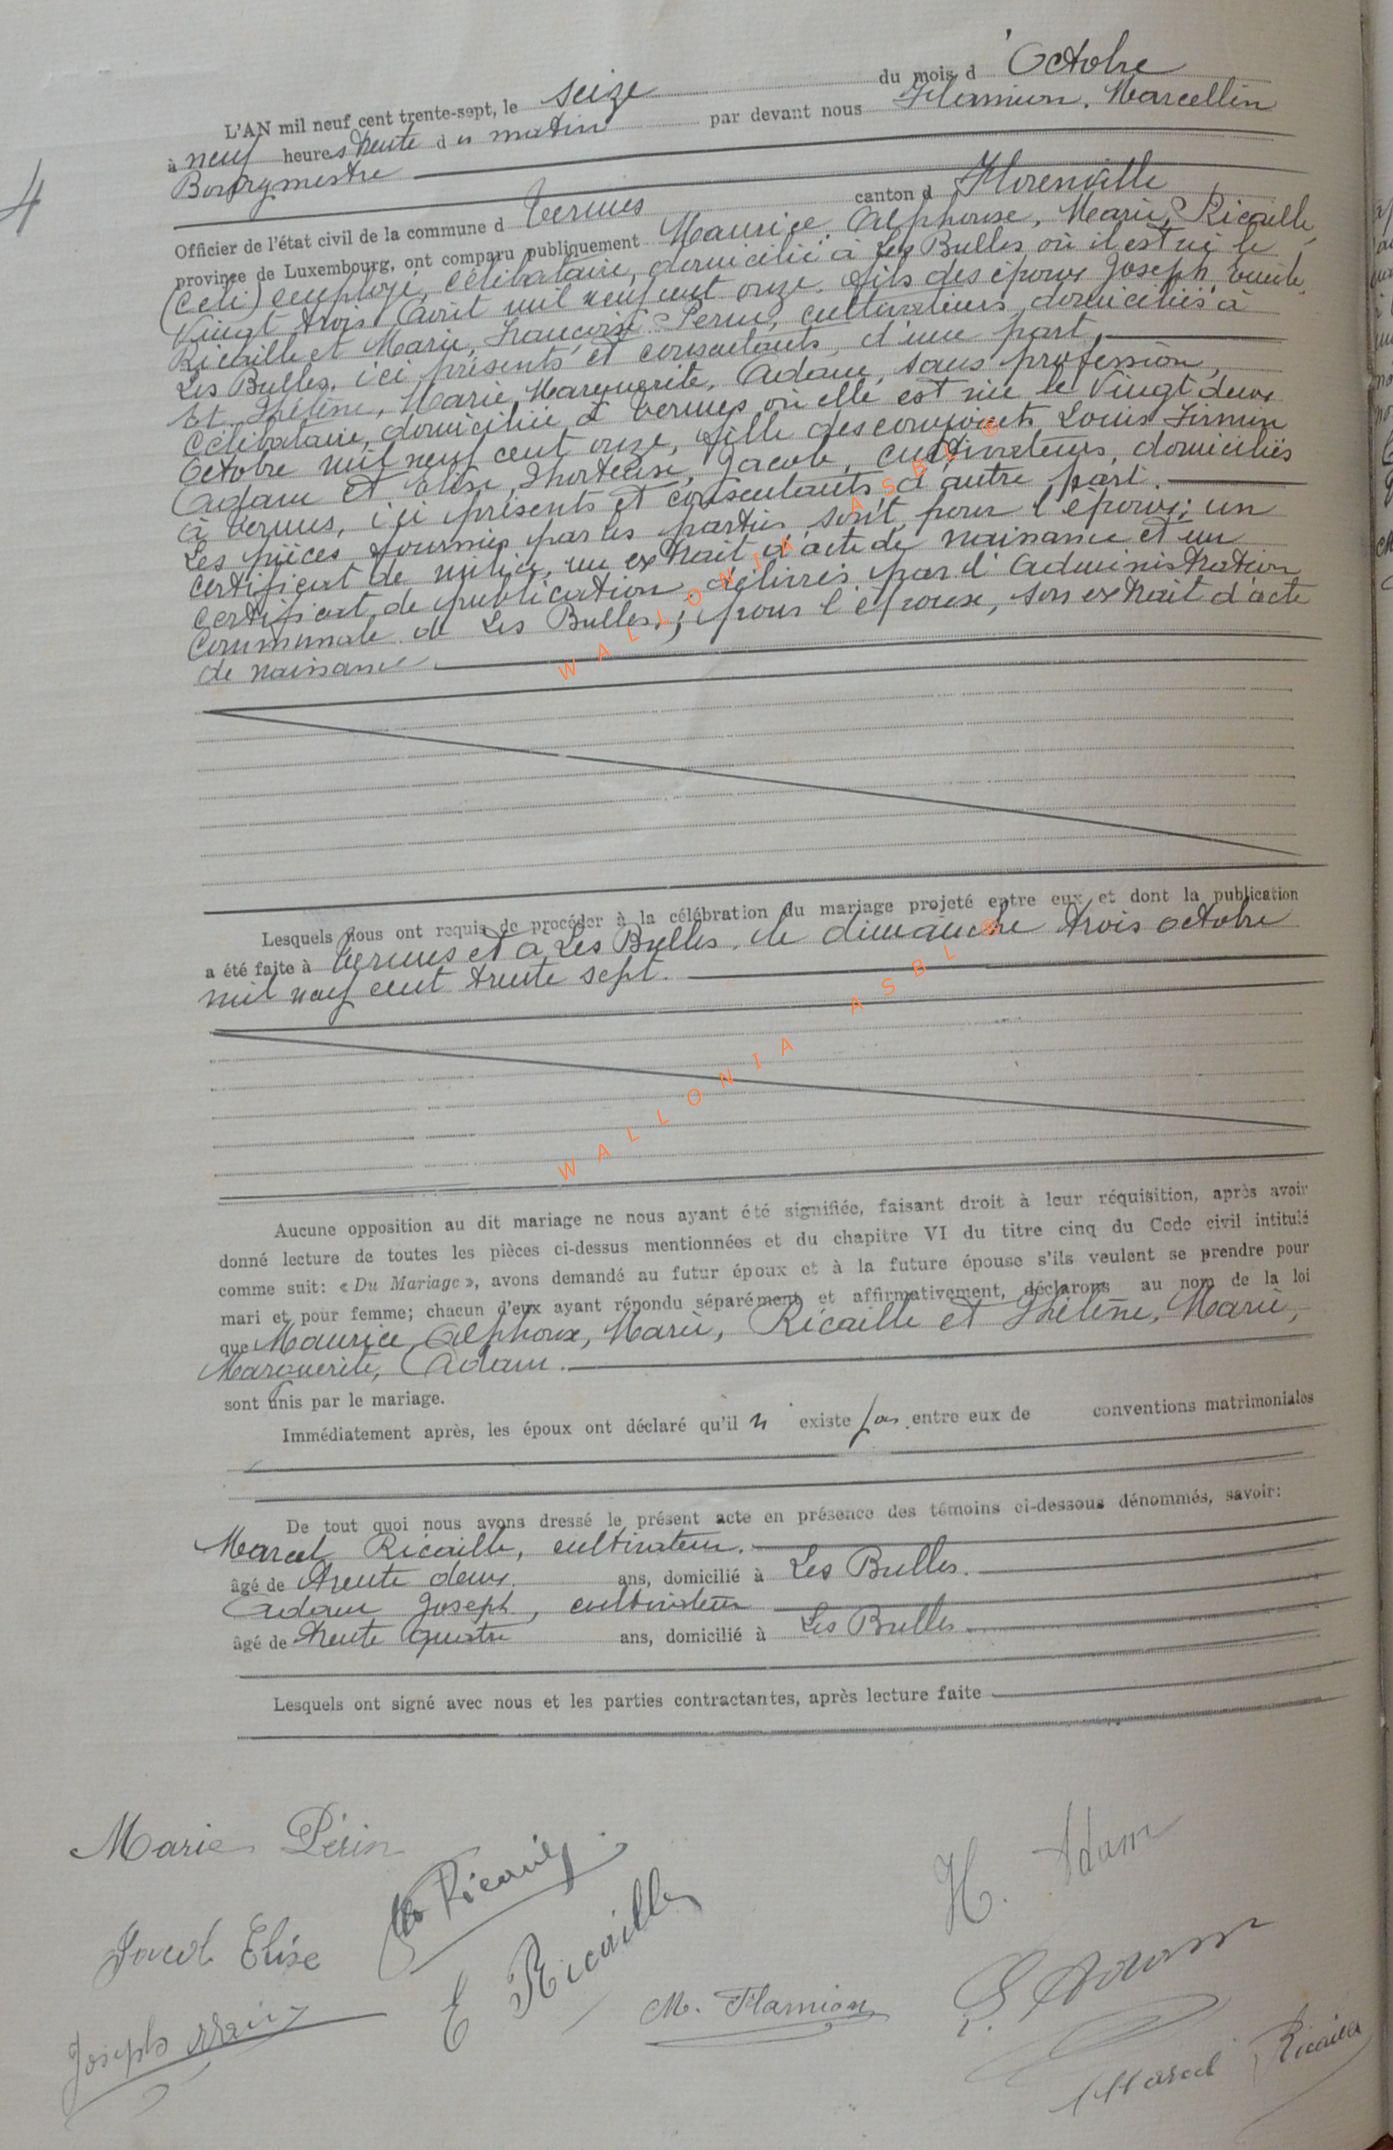 4
L'AN mil neuf cent trente-sept, le seize du mois d'Octobre
à neuf heures trente du matin par devant nous Flamion, Marcellin
Bourgmestre
Officier de l'état civil de la commune d Termes canton d Florenville
province de Luxembourg, ont comparu publiquement Maurice, Alphonse, Marie, Ricaille,
employé, célibataire, domicilié à Les Bulles où il est né le
vingt trois Août mil neuf cent onze. fils des époux Joseph
Ricaille et Marie, Françoise Perin, cultivateurs domiciliés à
Les Bulles, ici présents et consentants, d'une part,
Et Hélène, Marie, Marguerite, Adam, sans profession,
célibataire, domiciliée à Termes où elle est née le vingt deux
Octobre mil neuf cent onze, fille des conjoints Louis Firmin
Adam et Elise, Hortense, Jacob, cultivateurs, domiciliés
à Termes, ici présents et consentants d'autre part.
Les pièces fournies par les parties sont, pour l'époux; un
certificat de milice, un extrait d'acte de naissance et un
certificat de publication délivrés par l'Administration
Communale de Les Bulles; pour l'épouse, son extrait d'acte
de naissance.
Lesquels nous ont requis de procéder à la célébration du mariage projeté entre eux et dont la publication
a été faite à Termes et à Les Bulles, le dimanche trois octobre
mil neuf cent trente sept.
WALLONIA ASBL ®
WALLONIA ASBL ®
Aucune opposition au dit mariage ne nous ayant été signifiée, faisant droit à leur réquisition, après avoir
donné lecture de toutes les pièces ci-dessus mentionnées et du chapitre VI du titre cinq du Code civil intitulé
comme suit: « Du Mariage », avons demandé au futur époux et à la future épouse s'ils veulent se prendre pour
mari et pour femme; chacun d'eux ayant répondu séparément et affirmativement, déclarons au nom de la loi
que Maurice, Alphonse, Marie, Ricaille et Hélène, Marie,
Marguerite, Adam.
sont unis par le mariage.
Immédiatement après, les époux ont déclaré qu'il n' existe pas entre eux de conventions matrimoniales
De tout quoi nous avons dressé le présent acte en présence des témoins ci-dessous dénommés, savoir:
Marcel Ricaille, cultivateur.
âgé de trente deux ans, domicilié à Les Bulles.
Adam Joseph, cultivateur
âgé de trente quatre ans, domicilié à Les Bulles
Lesquels ont signé avec nous et les parties contractantes, après lecture faite
Marie Périn
Ricaille
H. Adam
Jacob Elise
E Ricaille
M. Flamion
Adam
Joseph
Marcel Ricaille